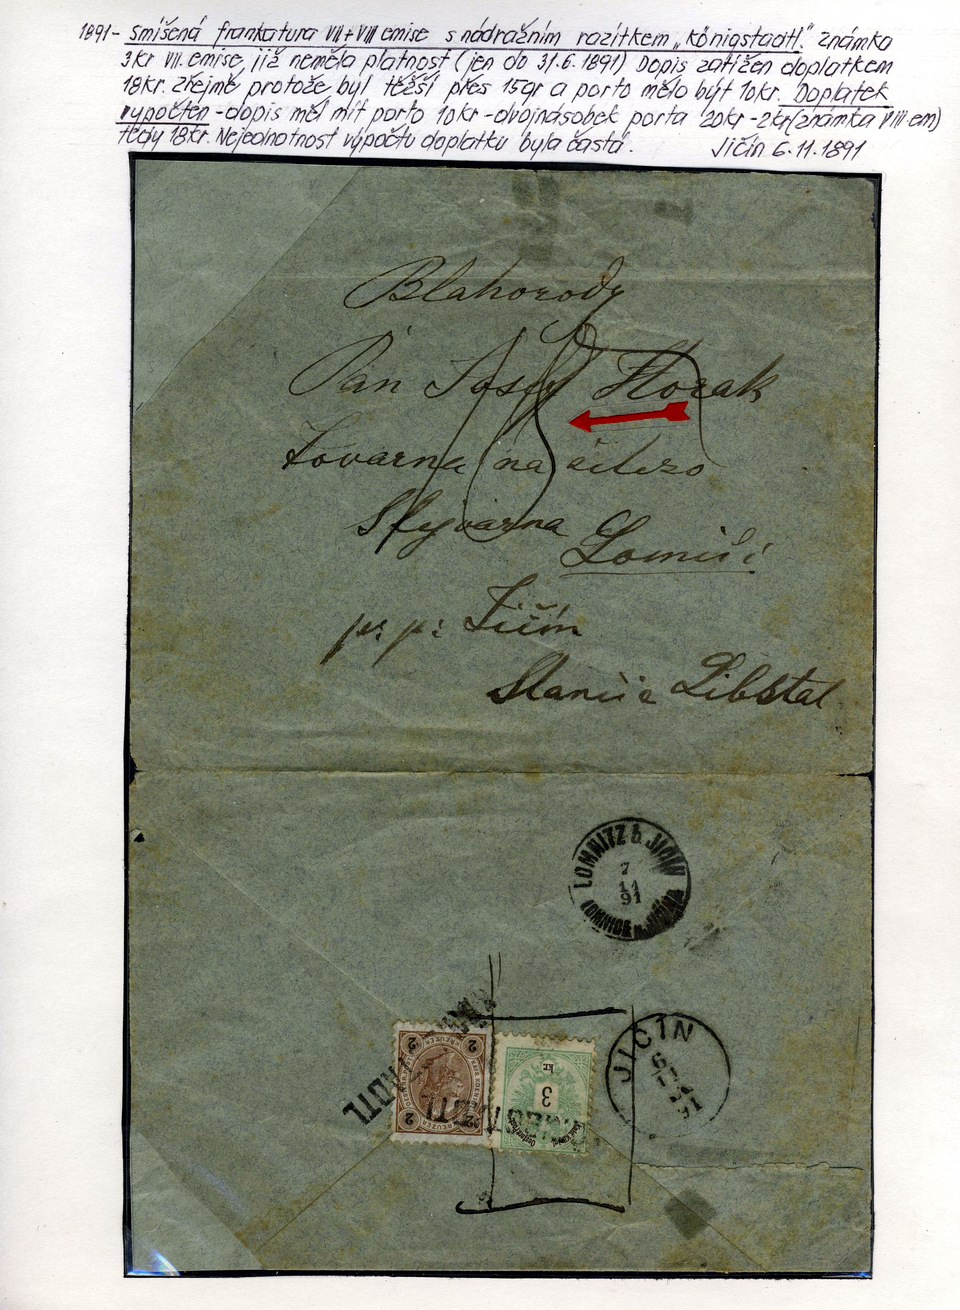 1891 - smíšená frankatura VII + VIII emise s nádražním razítkem „Königstadtl." známka
3kr VII. emise, již neměla platnost (jen do 31.6.1891) Dopis zatížen doplatkem
18kr. zřejmě protože byl těžší přes 15gr a porto mělo být 10kr. Doplatek
vypočten - dopis měl mít porto 10kr - dvojnásobek porta 20kr - 2kr (známka VIII em)
tedy 18kr. Nejednotnost výpočtu doplatku byla častá. Jičín 6.11.1891
Blahorody
Pán Josef Horak
18
tovarna na
Lomici
pr. p: Jičín
Stanice Libštal
LOMNITZ b. JIČIN
7
11
91
LOMNICE u JIČINA
JIČIN
2 KREUZER 2
2 2
3
kr